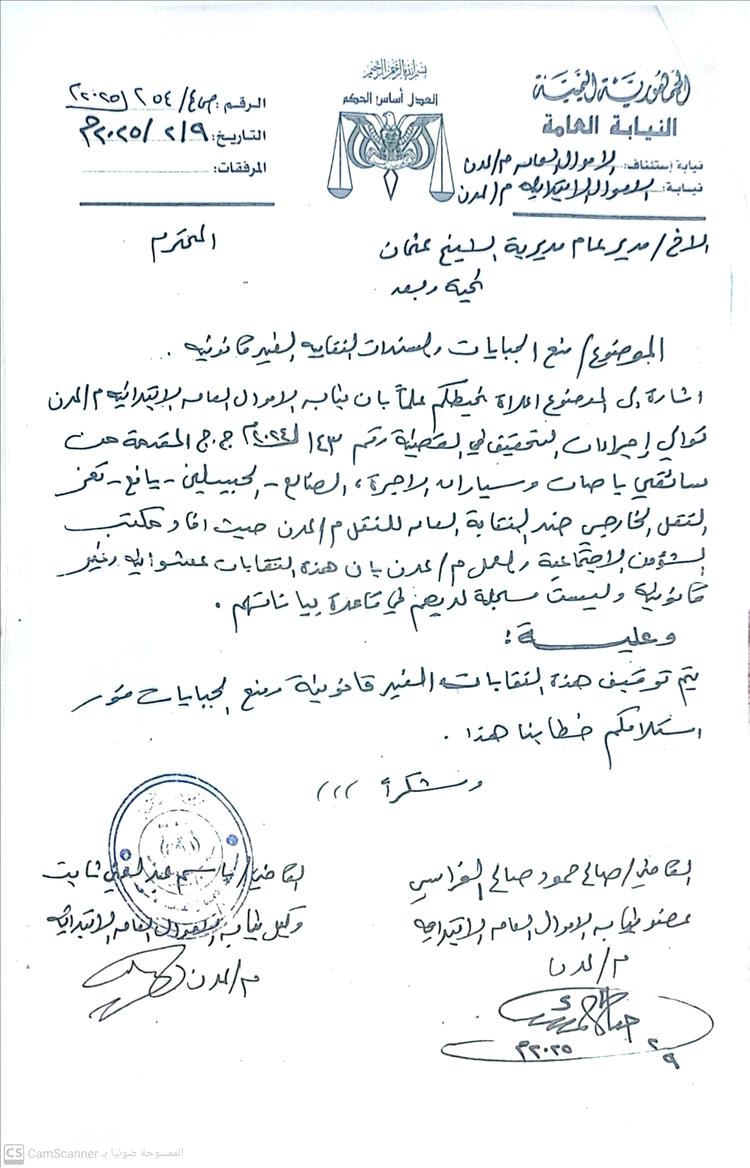 بسم الله الرحمن الرحيم
الجمهورية اليمنية
النيابة العامة
نيابة إستئناف: الاموال العامه م/عدن
نيابة: الاموال الابتدائيه م/عدن
العدل أساس الحكم
الرقم: ص ع/٢٥٤/٢٠٢٥م
التاريخ: ٢/٩/٢٠٢٥م
المرفقات:
الاخ/ مدير عام مديرية الشيخ عثمان المحترم
تحية وبعد
الموضوع/ منع الجبايات والسندات النقابيه الغير قانونيه .
اشارة الى الموضوع اعلاة نحيطكم علماً بان نيابه الاموال العامه الابتدائيه م/عدن
توالي إجراءات التحقيق في القضية رقم ١٤٣ لسنة ٢٠٢٤م ج.ج المقدمة من
سائقي باصات وسيارات الاجرة، الضالع - الحبيلين - يافع - تعز
النقل الخارجي ضد النقابة العامه للنقل م/عدن حيث افاد مكتب
الشؤون الاجتماعية والعمل م/عدن بان هذة النقابات عشوائيه وغير
قانونية وليست مسجلة لديهم في قاعدة بياناتهم .
وعليــة:
يتم توقيف هذة النقابات الغير قانونية ومنع الجبايات فور
استلامكم خطابنا هذا .
وشكراً ،،،
القاضي/ صالح حمود صالح
عضو نيابه الاموال العامه الابتدائيه
م/عدن
٢/٩
٢٠٢٥م
القاضي/ باسم عبدالغني ثابت
وكيل نيابه الاموال العامه الابتدائيه
م/عدن
CS CamScanner الممسوحة ضوئيا بـ